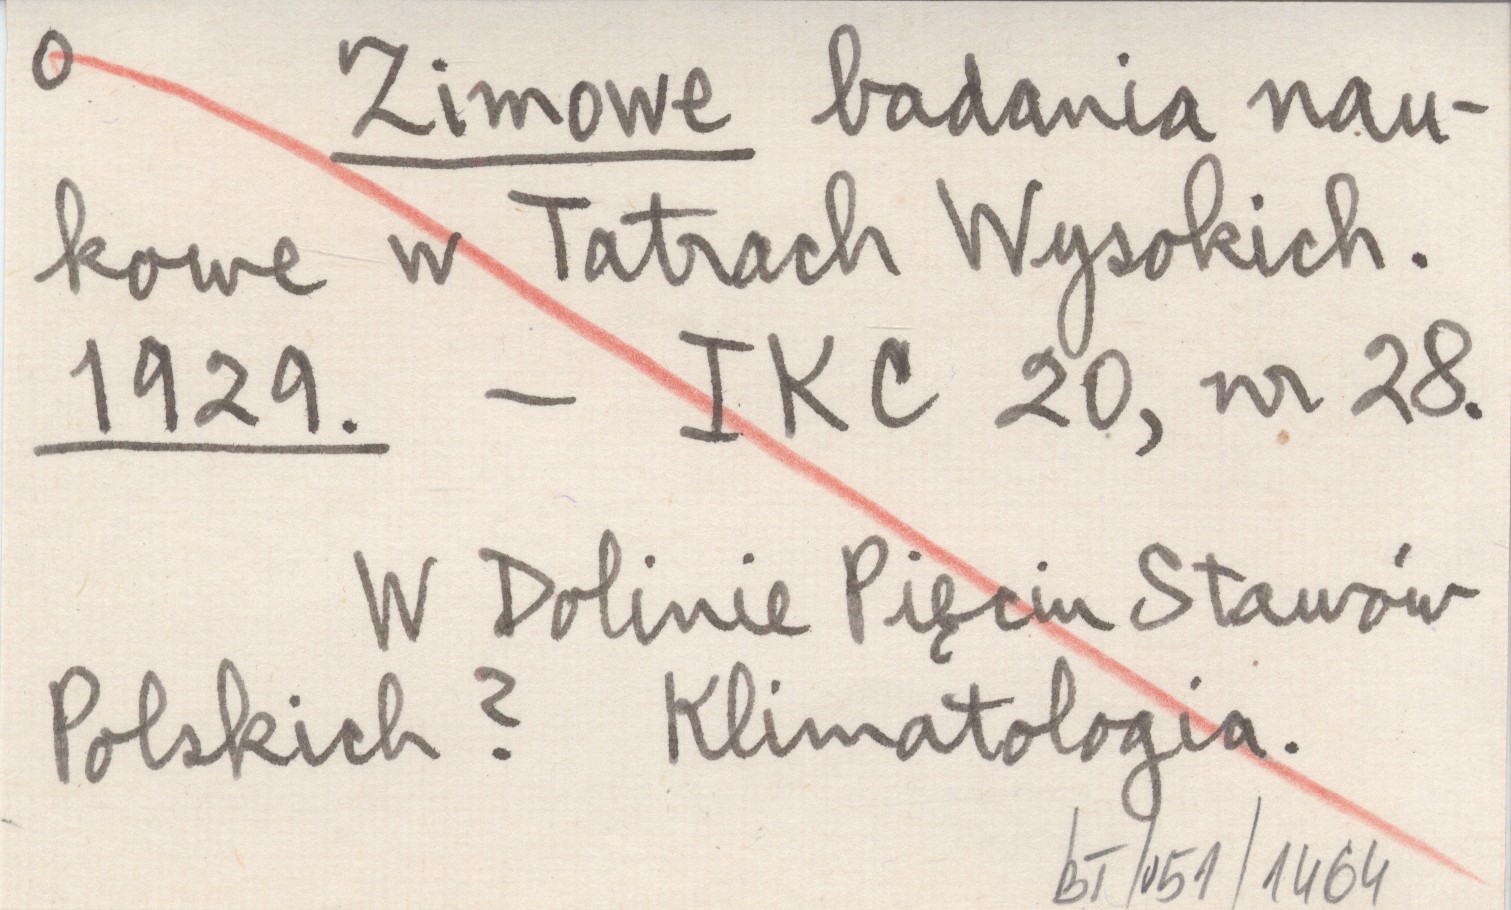 o Zimowe badania nau-
kowe w Tatrach Wysokich.
1929. – IKC 20, nr 28.
W Dolinie Pięciu Stawów
Polskich? Klimatologia.
BT/051/1464